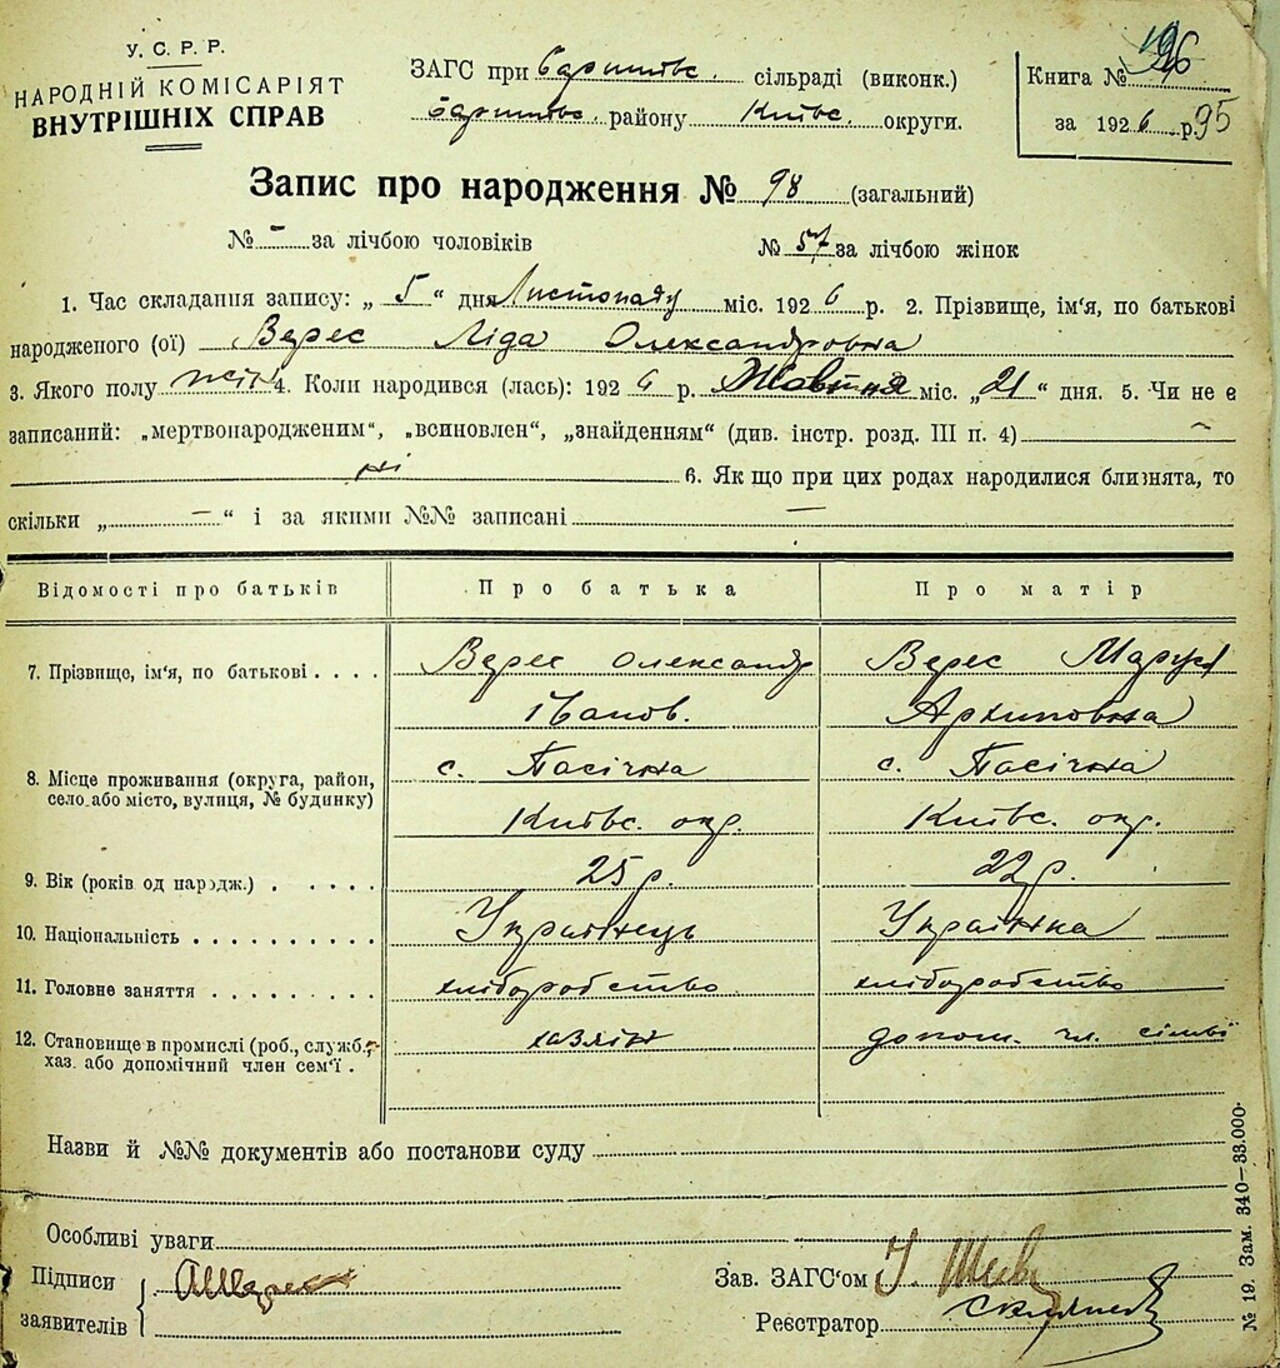 У. С. Р. Р.
НАРОДНІЙ КОМІСАРІЯТ
ВНУТРІШНІХ СПРАВ
ЗАГС при Баришівс. сільраді (виконк.)
Баришівс. району Київс. округи.
Книга №
за 1926 р. 95
Запис про народження № 98 (загальний)
№ - за лічбою чоловіків № 57 за лічбою жінок
1. Час складання запису: „ 5 “ дня Листопаду міс. 1926 р. 2. Прізвище, ім‘я, по батькові
народженого (ої) Верес Ліда Олександровна
3. Якого полу жін 4. Коли народився (лась): 1926 р. Жовтня міс. „21“ дня. 5. Чи не є
записаний: „мертвонародженим“, „всиновлен“, „знайденням“ (див. інстр. розд. III п. 4)
ні 6. Як що при цих родах народилися близнята, то
скільки „ — “ і за якими №№ записані —
Відомості про батьків Про батька Про матір
7. Прізвище, ім‘я, по батькові . . . . Верес Олександр Верес Маруся
Іванов. Архиповна
8. Місце проживання (округа, район, село або місто, вулиця, № будинку) с. Пасічна с. Пасічна
Київс. окр. Київс. окр.
9. Вік (років од народж.) . . . . . 25 р. 22 р.
10. Національність . . . . . . . . . . Українець Українка
11. Головне заняття . . . . . . . . . хліборобство хліборобство
12. Становище в промислі (роб., служб., хаз. або допомічний член сем‘ї . хазяїн допом. чл. сімьї
Назви й №№ документів або постанови суду
Особливі уваги
Підписи
заявителів
Зав. ЗАГС‘ом
Реєстратор
№ 19. Зам. 340—33.000.